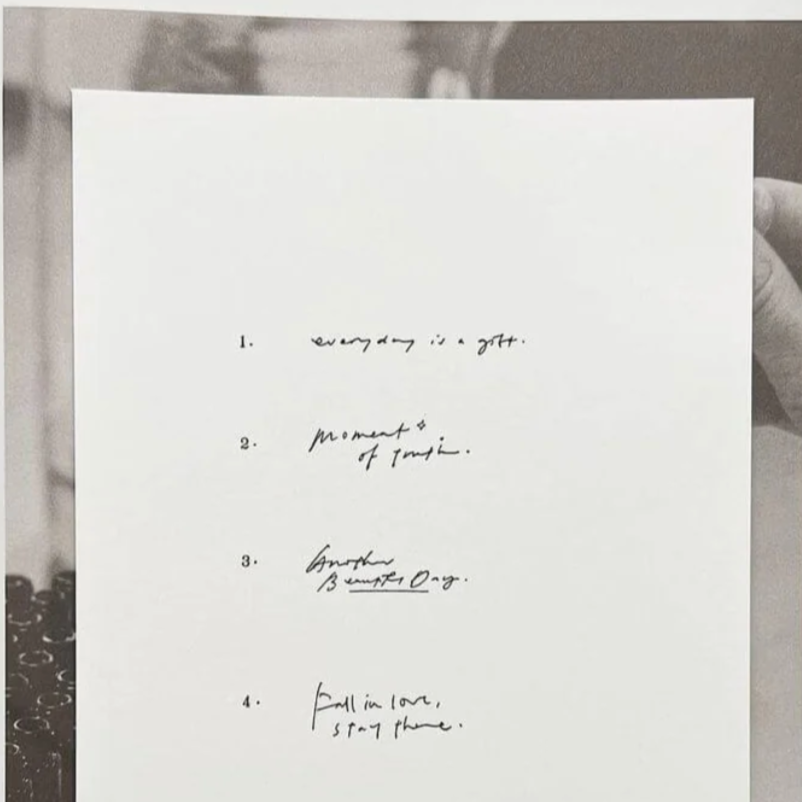 1. everyday is a gift.
2. Moment
of youth.
3. Another
Beautiful Day.
4. Fall in love,
stay there.